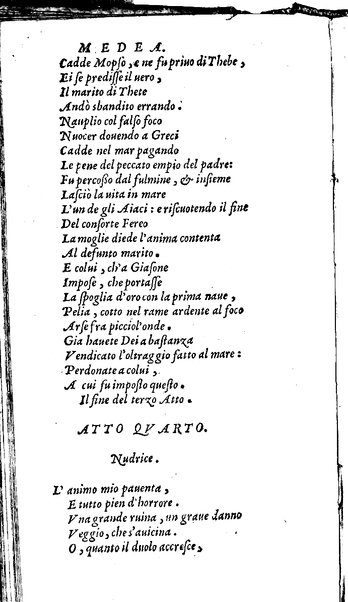 MEDEA.
Cadde Mopso, e ne fu priuo di Thebe,
Ei se predisse il uero,
Il marito di Thete
Andò sbandito errando.
Nauplio col falso foco
Nuocer douendo a Greci
Cadde nel mar pagando
Le pene del peccato empio del padre:
Fu percosso dal fulmine, & insieme
Lasciò la uita in mare
L'un de gli Aiaci: e riscuotendo il fine
Del consorte Fereo
La moglie diede l'anima contenta
Al defunto marito.
E colui, ch'a Giasone
Impose, che portasse
La spoglia d'oro con la prima naue,
Pelia, cotto nel rame ardente al foco
Arse fra picciol'onde.
Gia hauete Dei a bastanza
Vendicato l'oltraggio fatto al mare:
Perdonate a colui,
A cui fu imposto questo.
Il fine del terzo Atto.
ATTO QVARTO.
Nudrice.
L'animo mio pauenta,
E tutto pien d'horrore.
Vna grande ruina, un graue danno
Veggio, che s'auicina.
O, quanto il duolo accresce,